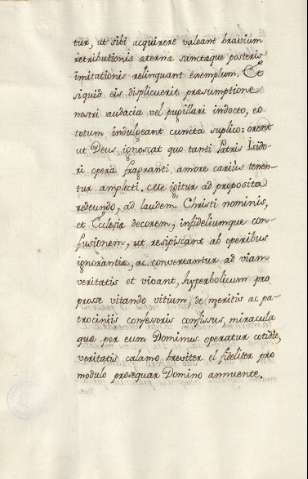 tur, ut sibi acquirere valeant bravium
retributionis aeterna sanctaque posteris
imitationis relinquant exemplum. Et
siquid eis displicuerit praesumptione
nostri audacia vel pupillari indocto, eo
totum indulgeant cuncta suplico: orent
ut Deus ignoscat quo tanti Patris Isido-
ri opera fragranti, amore carius tenen-
tur amplecti, esse igitur ad proposita
redeundo, ad laudem Christi nominis,
et Eclesiae decorem, infideliumque con-
fusionem, ut resipiscant ab operibus
ignorantiae, ac convertantur ad viam
veritatis et vivant, hyperbolicum pro
posse vitando vitium, de meritis ac pa-
trociniis confessoris confissus, miracula
quae per eum Dominus operatur cotidie,
veritatis calamo breviter et fideliter pro
modulo prosequar Domino annuente.